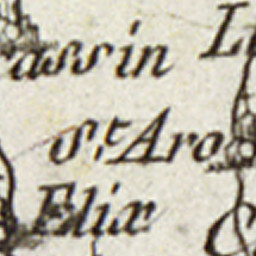 assin
St. Aro
Eliæ